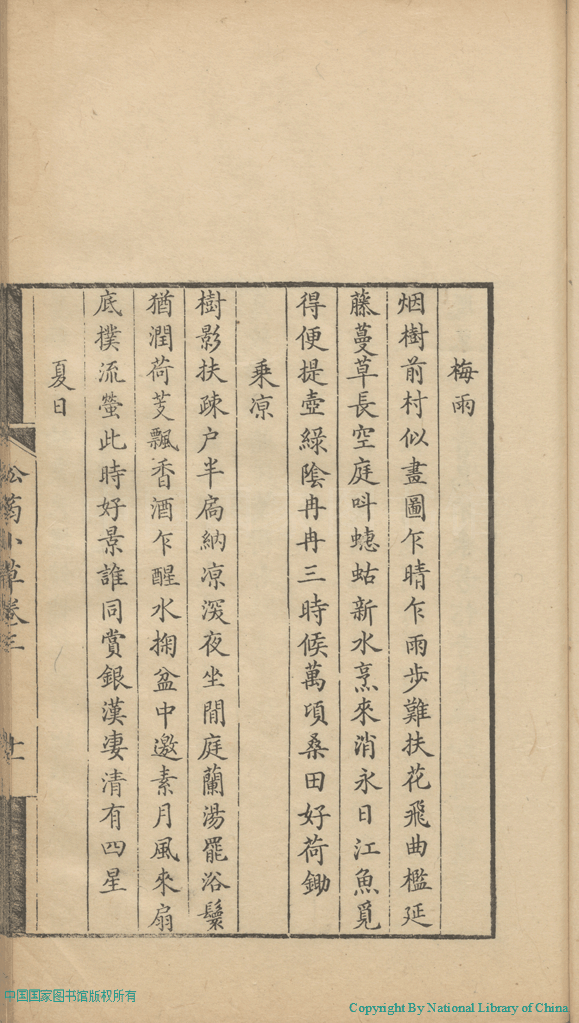 梅雨
烟樹前村似畫圖乍晴乍雨步難扶花飛曲檻延
藤蔓草長空庭呌蟪蛄新水烹來消永日江魚覓
得便提壺綠陰冉冉三時候萬頃桑田好荷鋤
乘凉
樹影扶疎户半扃納凉深夜坐閒庭蘭湯罷浴鬟
猶潤荷芰飄香酒乍醒水掬盆中邀素月風來扇
底撲流螢此時好景誰同賞銀漢凄清有四星
夏日
小草卷三
十一
中国国家图书馆版权所有
Copyright By National Library of China